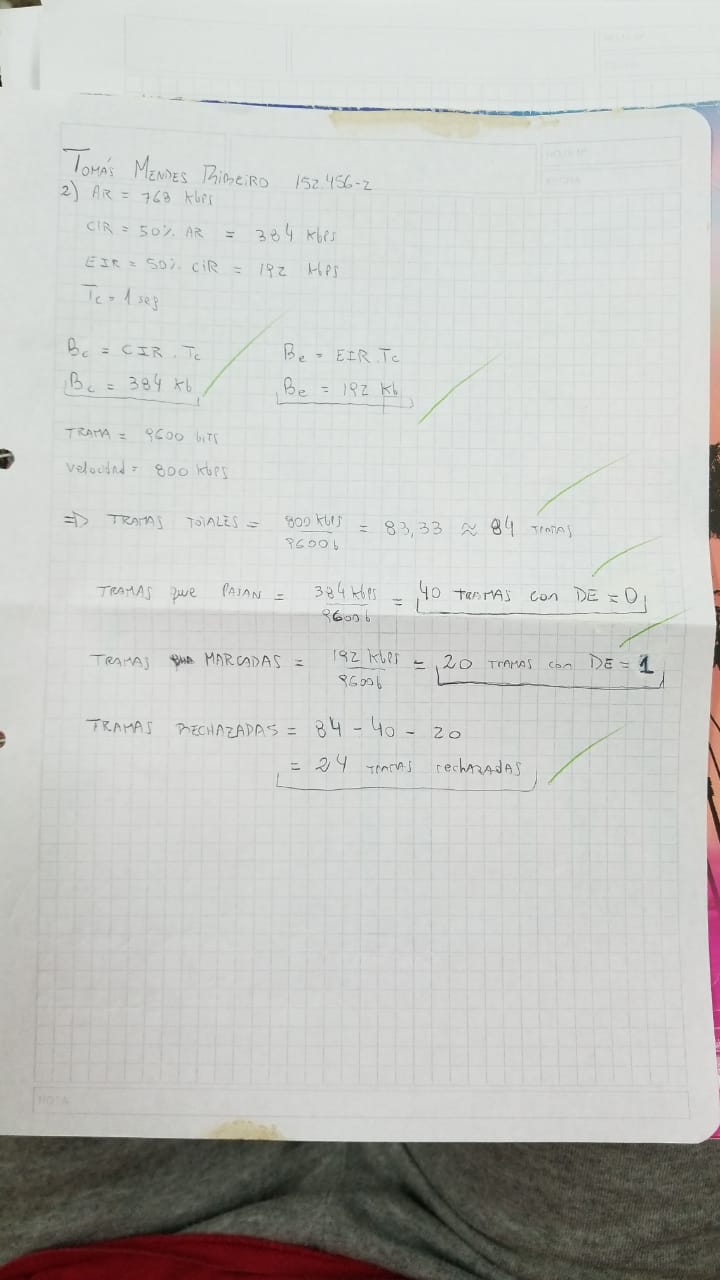 TOMÁS MENDES RIBEIRO 152.456-2
2) AR = 768 Kbps
CIR = 50% AR = 384 Kbps
EIR = 50% CIR = 192 Kbps
Tc = 1 seg
Bc = CIR . Tc
Bc = 384 Kb
Be = EIR . Tc
Be = 192 Kb
TRAMA = 9600 bits
Velocidad = 800 Kbps
=> TRAMAS TOTALES = 800 Kbps / 9600 b = 83,33 ≈ 84 TRAMAS
TRAMAS que PASAN = 384 Kbps / 9600 b = 40 TRAMAS con DE = 0
TRAMAS MARCADAS = 192 Kbps / 9600 b = 20 TRAMAS con DE = 1
TRAMAS RECHAZADAS = 84 - 40 - 20
= 24 TRAMAS rechazadas
NOTA